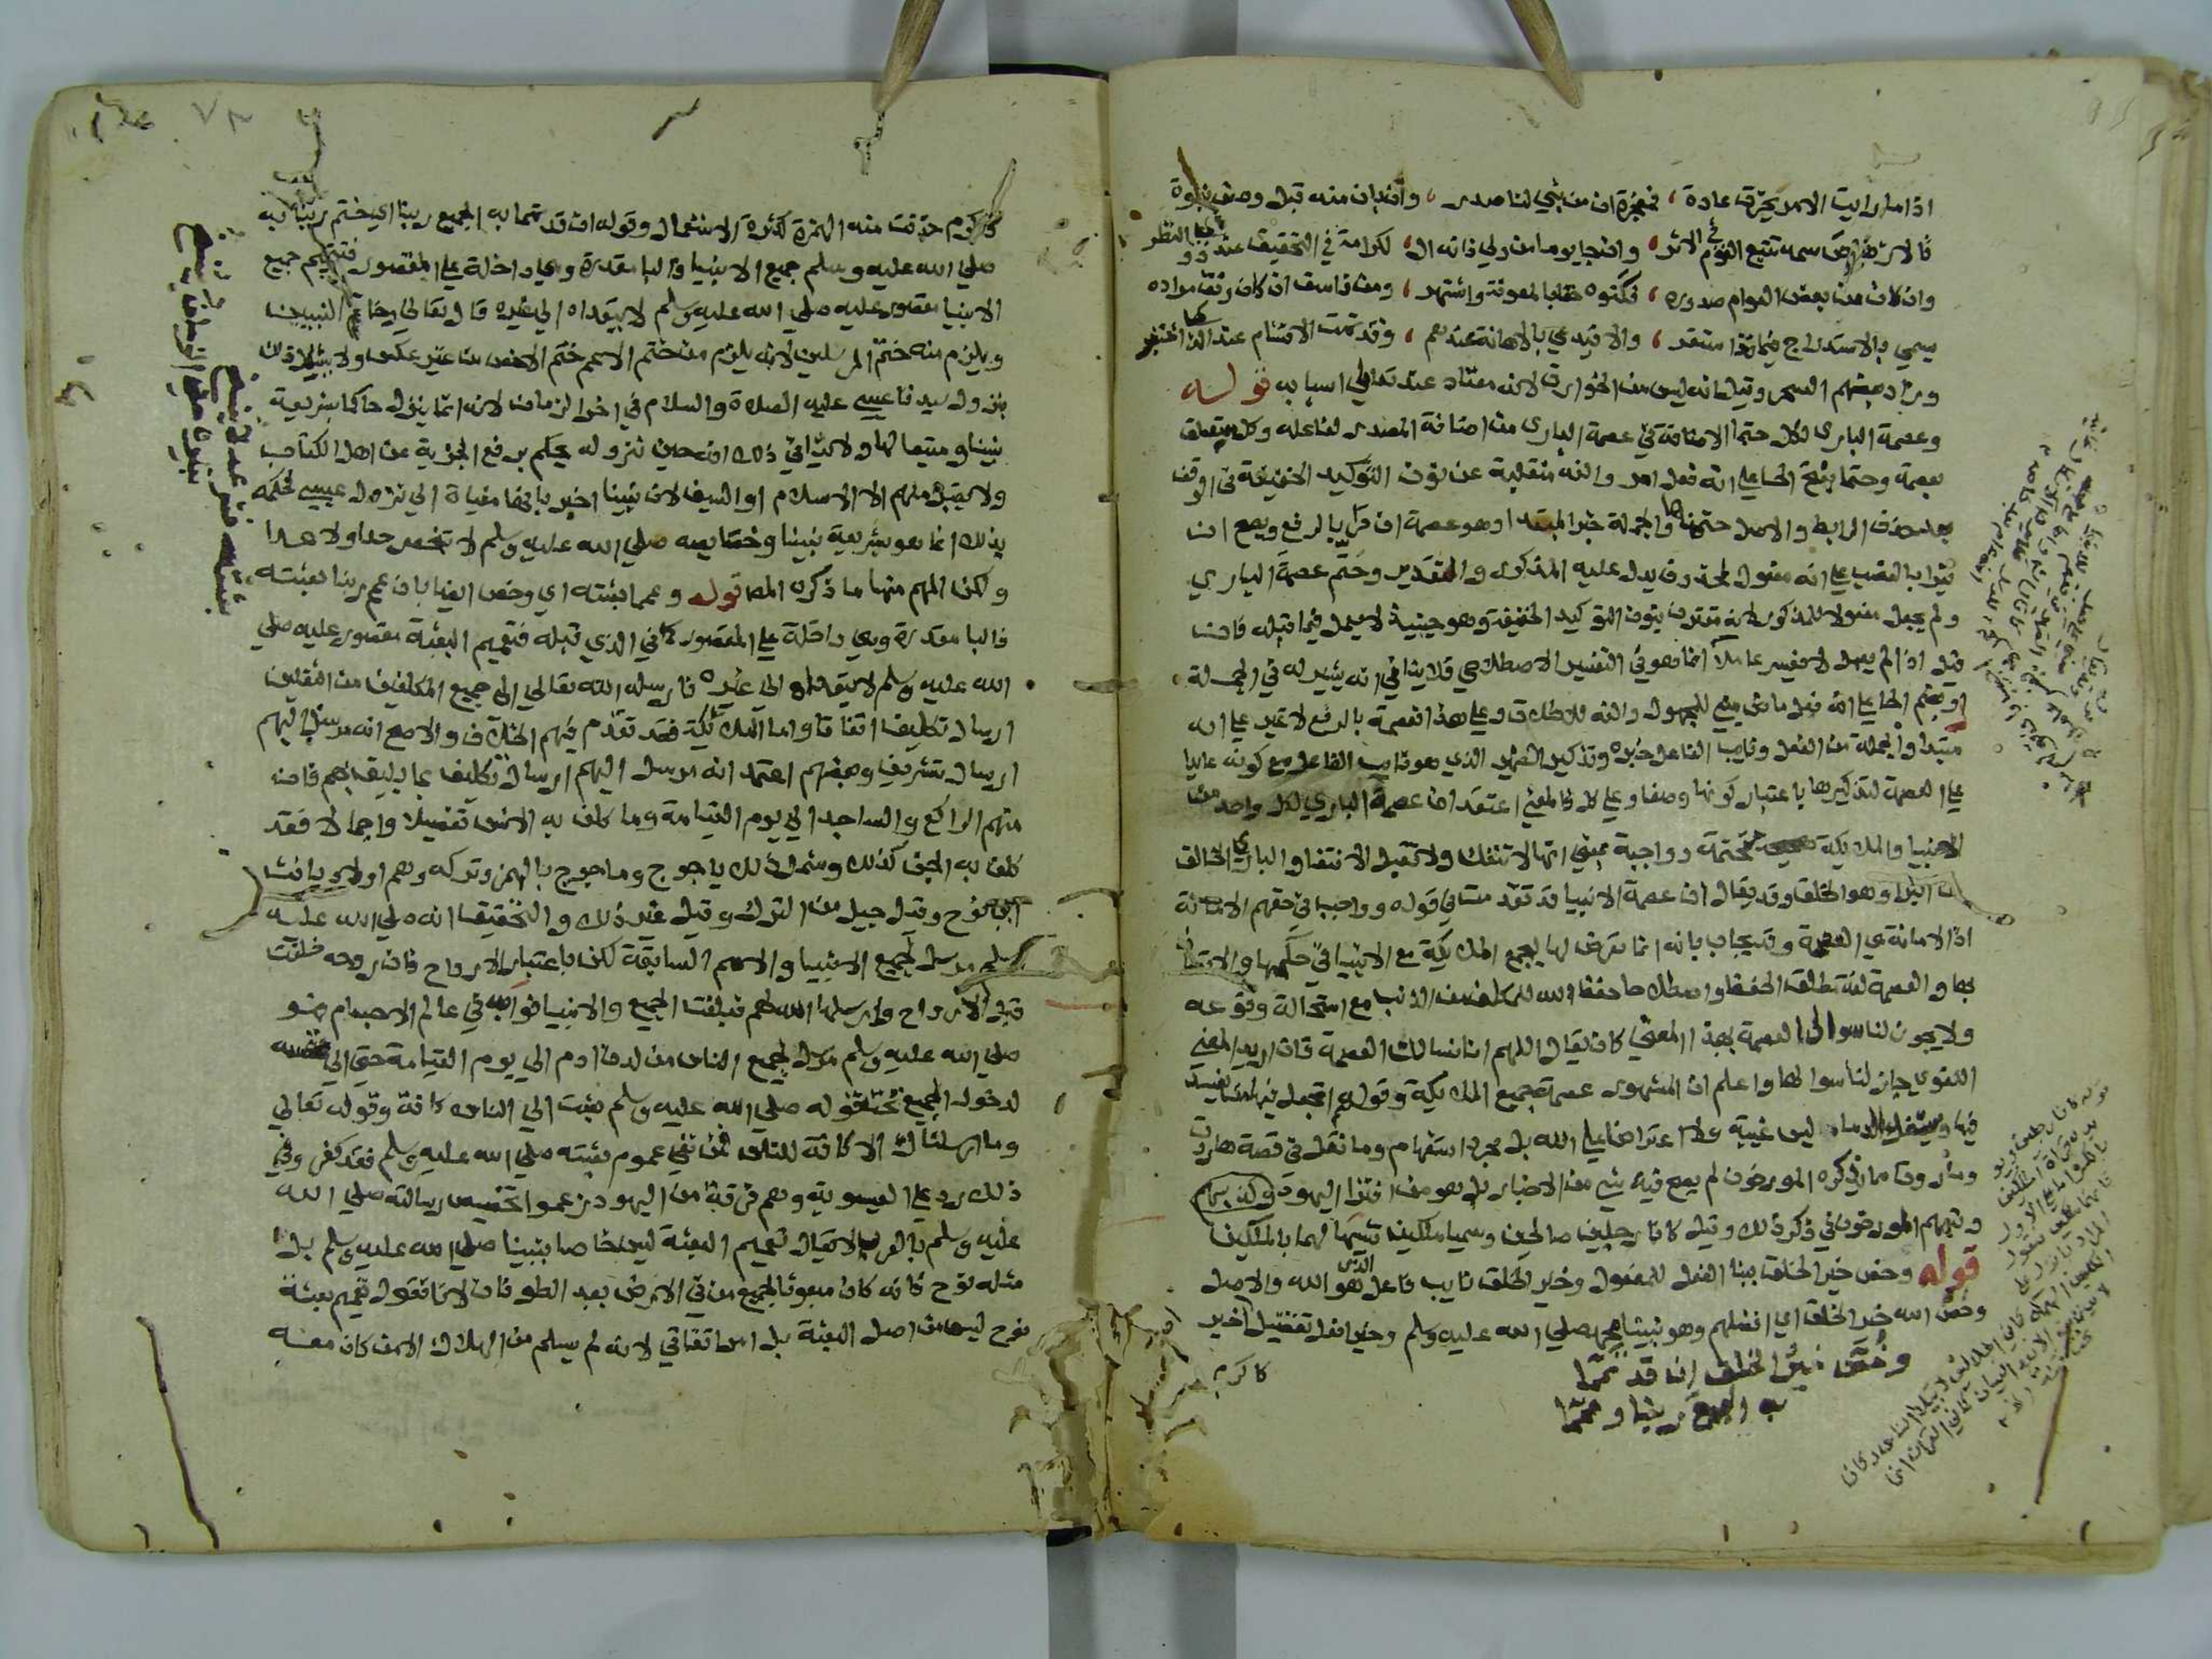 اذا ما رايت الامر يخرق عادة ، فمعجزة ان من نبي لنا صدر ، وان بان منه قبل وصف نبوة
فالارهاص سمه تتبع القوم في الاثر ، وان جا يوما من ولي فانه ال ، كرامة في التحقيق عند ذوي النظر
وان كان من بعض العوام صدوره ، فكنوه حقا بالمعونة واشتهر ، ومن فاسق ان كان وفق مراده
يسمى بالاستدراج فيما قد استقر ، والا فيدعى بالاهانة عندهم ، وقد تمت الاقسام عند الذي اختبر
وزاد بعضهم السحر وقيل انه ليس من الخوارق لانه معتاد عند تعاطي اسبابه قوله
وعصمة الباري لكل حتما الاضافة في عصمة الباري من اضافة المصدر لفاعله وكل متعلق
بعصمة وحتما بفتح الحا على انه فعل امر والفه منقلبة عن نون التوكيد الخفيفة في الوقف
بعد حذف الرابط والاصل حتمنها والجملة خبر المبتدا وهو عصمة ان قرئ بالرفع ويصح ان
يقرا بالنصب على انه مفعول لمحذوف يدل عليه المذكور والتقدير وحتم عصمة الباري
ولم يجعل مفعولا للمذكور لانه مقترن بنون التوكيد الخفيفة وهو حينئذ لا يعمل فيما قبله فان
قيل اذا لم يعمل لا يفسر عاملا انما هو في التفسير الاصطلاحي فلا ينافي انه يشير له في الجملة
او بضم الحا على انه فعل ماض مبني للمجهول والفه للاطلاق وعلى هذا فعصمة بالرفع لا غير على انه
مبتدا والجملة من الفعل ونايب الفاعل خبره وتذكير الضمير الذي هو نايب الفاعل مع كونه عايدا
على العصمة لتذكيرها باعتبار كونها وصفا وعلى كل فالمعنى اعتقد ان عصمة الباري لكل واحد من
الانبيا والملايكة محتمة وواجبة بمعنى انها لا تنفك ولا تقبل الانتفا والباري الخالق
من البرا وهو الخلق وقد يقال ان عصمة الانبيا قد تقدمت في قوله وواجب في حقهم الامانة
اذ الامانة هي العصمة وقد يجاب بانه انما تعرض لها ليجمع الملايكة مع الانبيا في حكمها والاعتقاد
بها والعصمة لغة مطلق الحفظ واصطلاحا حفظ الله للمكلف من الذنب مع استحالة وقوعه
ولا يجوز لنا سوال العصمة بهذا المعنى كان يقال اللهم انا نسالك العصمة فان اريد المعنى
اللغوي جاز لنا سوالها واعلم ان المشهور عصمة جميع الملايكة وقولهم اتجعل فيها من يفسد
فيها ويسفك الدما ليس غيبة ولا اعتراضا على الله بل مجرد استفهام وما نقل في قصة هاروت
وماروت مما يذكره المورخون لم يصح فيه شي من الاخبار بل هو من افترا اليهود وكذبهم
وتبعهم المورخون في ذكر ذلك وقيل كانا رجلين صالحين وسميا ملكين تشبيها لهما بالملكين
قوله وخص خير الخلق ببنا الفعل للمفعول وخير الخلق نايب فاعل الذي هو الله والاصل
وخص الله خير الخلق اي افضلهم وهو نبينا محمد صلى الله عليه وسلم وخير افعل تفضيل اخير
وخُصَّ خيرُ الخلق ان قد تمما
به الجميع ربنا وعمما
كاكرم
كاكرم حذفت منه الهمزة لكثرة الاستعمال وقوله ان قد تمما به الجميع ربنا اي ختم ربنا به
صلى الله عليه وسلم جميع الانبيا والبا مقدرة وهي داخلة على المقصور فتتميم جميع
الانبيا مقصور عليه صلى الله عليه وسلم لا يتعداه الى غيره قال تعالى وخاتم النبيين
ويلزم منه ختم المرسلين لانه يلزم من ختم الاعم ختم الاخص من غير عكس ولا يشكل ذلك
بنزول سيدنا عيسى عليه الصلاة والسلام في اخر الزمان لانه انما ينزل حاكما بشريعة
نبينا ومتبعا لها ولا ينافي ذلك انه حين نزوله يحكم برفع الجزية عن اهل الكتاب
ولا يقبل منهم الا الاسلام او السيف لان نبينا اخبر بانها مغياة الى نزول عيسى فحكمه
بذلك انما هو بشريعة نبينا وخصايصه صلى الله عليه وسلم لا تنحصر حدا ولا عدا
ولكن المهم منها ما ذكره المص قوله وعمما بعثته اي وخص ايضا بان عمم ربنا بعثته
فالبا مقدرة وهي داخلة على المقصور كما في الذي قبله فتعميم البعثة مقصور عليه صلى
الله عليه وسلم لا يتعداه الى غيره فارسله الله تعالى الى جميع المكلفين من الثقلين
ارسال تكليف اتفاقا واما الملايكة فقد تقدم فيهم الخلاف والاصح انه مرسل اليهم
ارسال تشريف وبعضهم اعتمد انه مرسل اليهم ارسال تكليف بما يليق بهم فان
منهم الراكع والساجد الى يوم القيامة وما كلف به الانس تفصيلا واجمالا فقد
كلف به الجن كذلك وشمل ذلك ياجوج وماجوج بالهمز وتركه وهم اولاد يافث
ابن نوح وقيل جيل من الترك وقيل غير ذلك والتحقيق انه صلى الله عليه
وسلم مرسل لجميع الانبيا والامم السابقة لكن باعتبار الارواح فان روحه خلقت
قبل الارواح وارسلها الله لهم فبلغت الجميع والانبيا نوابه في عالم الاجسام فهو
صلى الله عليه وسلم مرسل لجميع الناس من لدن ادم الى يوم القيامة حتى الى نفسه
لدخول الجميع تحت قوله صلى الله عليه وسلم بعثت الى الناس كافة وقوله تعالى
وما ارسلناك الا كافة للناس فمن نفى عموم بعثته صلى الله عليه وسلم فقد كفر وفي
ذلك رد على العيسوية وهم فرقة من اليهود زعموا تخصيص رسالته صلى الله
عليه وسلم بالعرب لا يقال تعميم البعثة ليس خاصا بنبينا صلى الله عليه وسلم بل
مثله نوح فانه كان مبعوثا لجميع من في الارض بعد الطوفان لانا نقول تعميم بعثة
نوح ليس من اصل البعثة بل امر اتفاقي لانه لم يسلم من الهلاك الا من كان معه